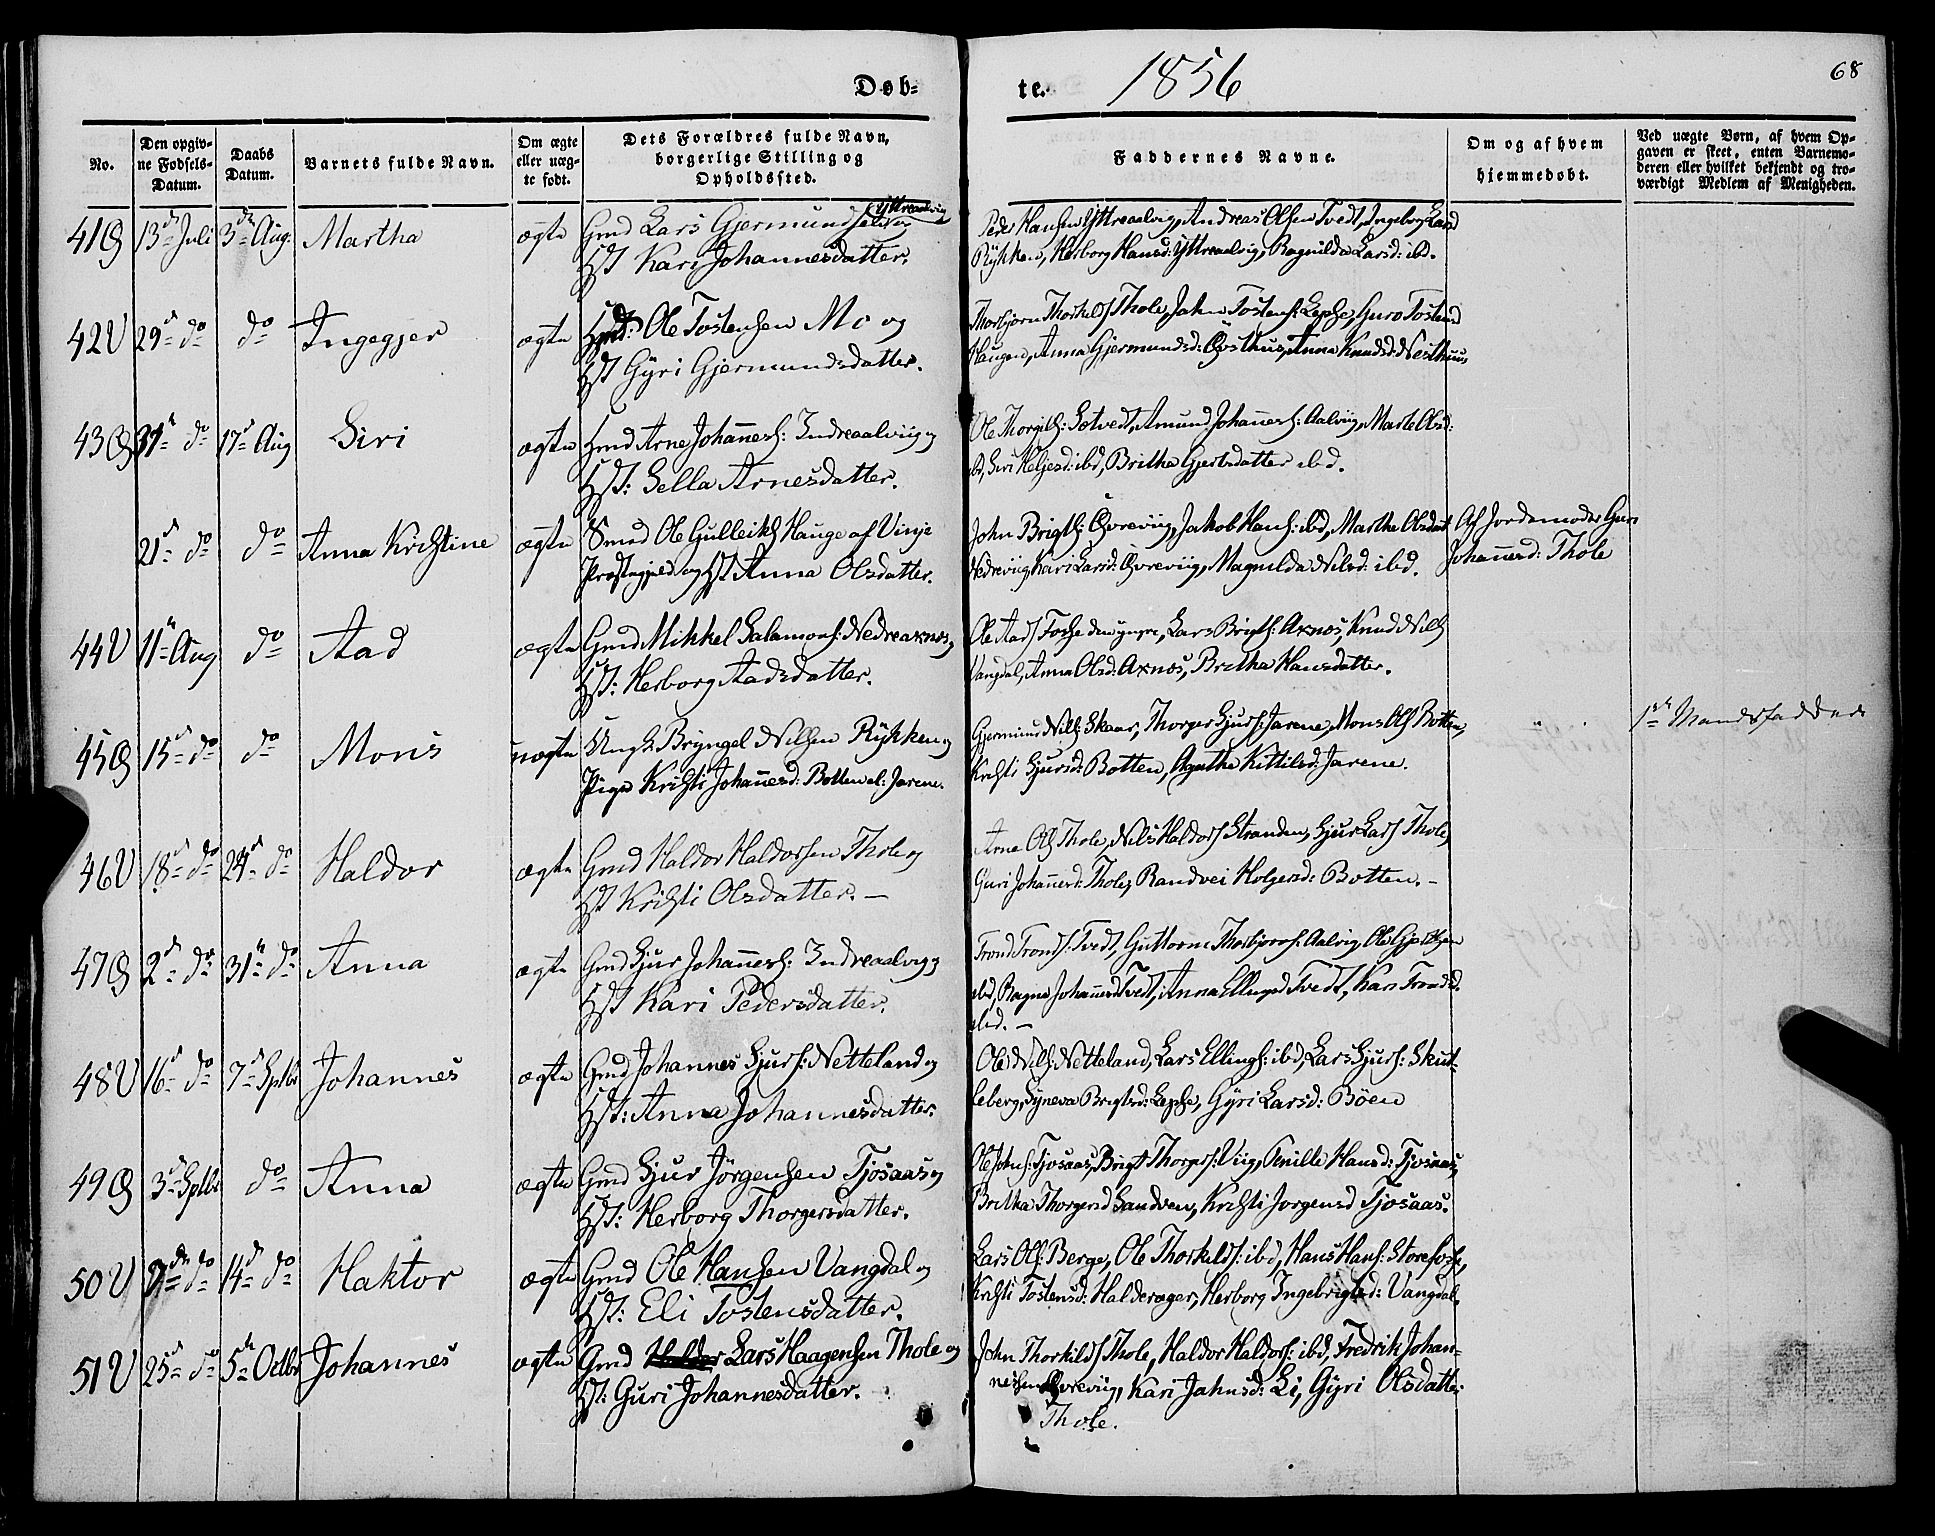 Døb-
te. 1856
68
No.
Den opgiv-
ne Fødsels-
Datum.
Daabs
Datum.
Barnets fulde Navn.
Om ægte
eller uæg-
te født.
Dets Forældres fulde Navn,
borgerlige Stilling og
Opholdssted.
Faddernes Navne.
Om og af hvem
hjemmedøbt.
Ved uægte Børn, af hvem Op-
gaven er skeet, enten Barnemo-
deren eller hvilket bekjendt og tro-
værdigt Medlem af Menigheden.
41 13de Juli 3die Aug: Martha ægte Gmd Lars Gjermundsen Yttreaalvig og
Hst Kari Johannesdatter.
Peder Hansen Yttreaalvig, Andreas Olsen Tvedt, Ingeborg Larsd
Rykken, Herborg Hansd: Yttreaalvig, Ragnilda Larsd: ibd.
42 29d do do Ingegjer ægte Ole Tostensen Mo og
Hst Gyri Gjermundsdatter.
Thorbjørn Thorkelds Thole, John Tostens: Lepse, Guro Tostensd
Haugen, Anna Gjermundsd: Østhus, Anna Knudsd Nesthuus
43 31te do 17d Aug Siri ægte Gmd Arne Johannes: Indreaalviig og
Hst: Sella Arnesdatter.
Ole Thorgils: Sotvedt, Amund Johannes: Aalviig, Marte Olsd:
ibd, Siri Heljesd: ibd, Britha Gjertsdatter ibd.
21d do do Anna Kristine ægte Smed Ole Gulleiks Hauge af Vinje
Præstegjeld og Hst Anna Olsdatter.
John Brigts: Øvreviig, Jakob Hans: ibd, Martha Olsdat
Nedreviig, Kari Larsd: Øvreviig, Magnilda Nilsd: ibd.
Af Jordemoder Guro
Johannesd: Thole
44 11te Aug do Aad ægte Gmd Mikkel Salamons: Nedreaxnes og
Hst: Herborg Aadsdatter.
Ole Aads Fosse den yngre, Lars Brigts: Axnes, Knud Nils
Vangdal, Anna Olsd: Axnes, Britha Hansdatter.
45 15d do do Mons uægte Ungk: Bryngel Nilsen Rykken og
Pige Kristi Johannesd: Botten el: Jarene.
Gjermund Nils: Skaar, Thorger Sjurs: Jarene, Mons Ols Botten,
Kristi Sjursd: Botten, Agatha Kittilsd: Jarene.
1ste Mandsfadder
46 18d do 24d do Haldor ægte Gmd Haldor Haldorsen Thole og
Hst Kristi Olsdatter. —
Arne Ols Thole, Nils Haldors Stranden, Sjur Lars Thole,
Guri Johannesd: Thole, Randvei Holgersd: Botten. —
47 2d do 31te do Anna ægte Gmd Sjur Johannes: Indreaalvig og
Hst Kari Pedersdatter.
Trond Tronds: Tvedt, Guttorm Thorbjørns: Aalvig, Ole Gjertsen
ibd, Ragna Johannesd Tvedt, Anna Ellingsd Tvedt, Kari Trondsd
ibd. —
48 16d do 7d Sptbr Johannes ægte Gmd Johannes Sjurs: Netteland og
Hst: Anna Johannesdatter.
Ole Nils: Netteland, Lars Ellings: ibd, Lars Sjurs: Skut-
leberg, Synneva Brigtsd: Lepse, Gyri Larsd: Bøen
49 3d Sptbr do Anna ægte Gmd Sjur Jørgensen Tjosaas og
Hst: Herborg Thorgersdatter.
Ole Johns: Tjosaas, Brigt Thorgers: Viig, Pernille Hansd: Tjosaas,
Britha Thorgersd Sandven, Kristi Jorgensd Tjosaas.
50 do 14d do Haktor ægte Gmd Ole Hansen Vangdal og
Hst: Eli Tostensdatter.
Lars Ols: Berge, Ole Thorkelds: ibd, Hans Hans: Storefosse,
Kristi Tostensd: Halderager, Herborg Ingebrigtsd: Vangdal.
51 25d do 5te Octbr Johannes ægte Gmd Lars Haagensen Thole og
Hst: Guri Johannesdatter.
John Thorkilds Thole, Haldor Haldors: ibd, Fredrik Johan-
nessen Øvreviig, Kari Johnsd: Li, Gyri Olsdatter
Thole.